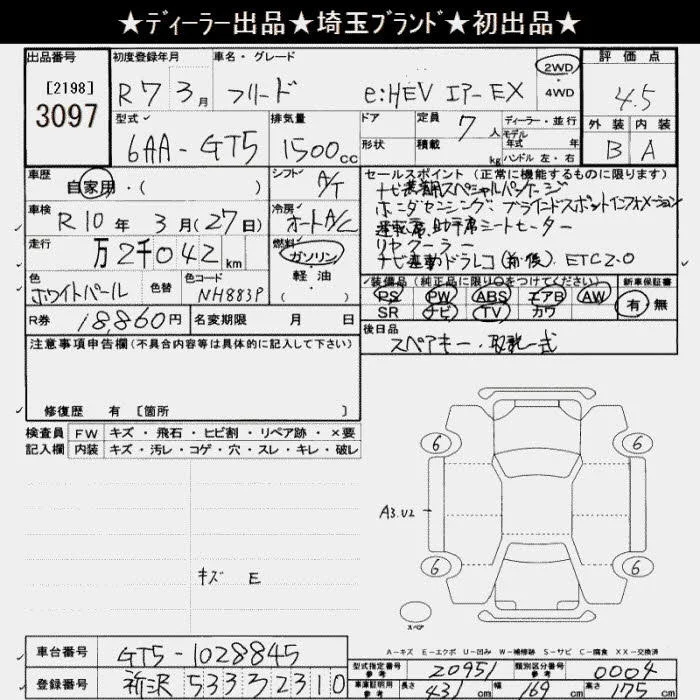 ★ディーラー出品★埼玉ブランド★初出品★
出品番号 初度登録年月 車名・グレード 評価点
[2198]
3097
R 7 3月 フリード e:HEV エアーEX 2WD ・ 4WD 4.5
型式 排気量 ドア 定員 7人 ディーラー・並行 外装 内装
6AA-GT5 1500cc 形状 積載 kg モデル年式 年式 ハンドル 左・右 B A
車歴 自家用・( ) シフト A/T セールスポイント(正常に機能するものに限ります)
車検 R10年 3月(27日) 冷房 オートA/C
ホンダセンシング、ブラインドスポットインフォメーション
運転席、助手席シートヒーター
リヤクーラー
ナビ連動ドラレコ(前後) ETC2.0
走行 万2千042km 燃料 ガソリン 軽・油 ( )
色 ホワイトパール 色替 色コード NH883P
装備品(純正品に限り○をつけてください) 新車保証書
PS PW ABS エアB AW 有・無
SR ナビ TV カワ
R券 18,860円 名変期限 月 日
後日品
スペアキー・取説一式
注意事項申告欄(不具合内容等は具体的に記入して下さい)
修復歴 有 [箇所 ]
検査員 FW キズ・飛石・ヒビ割・リペア跡・×要
記入欄 内装 キズ・汚レ・コゲ・穴・スレ・キレ・破レ
キズ E
6 6
A3.U2
6 6
スペア
A-キズ E-エクボ U-凹み W-補修跡 S-サビ C-腐食 XX-交換済
車台番号 GT5-1028845
型式指定番号 参考 20951 類別区分番号 参考 0004
登録番号 所沢 533 ろ 2310
車庫証明用 参考 長さ 431cm 幅 169cm 高さ 175cm